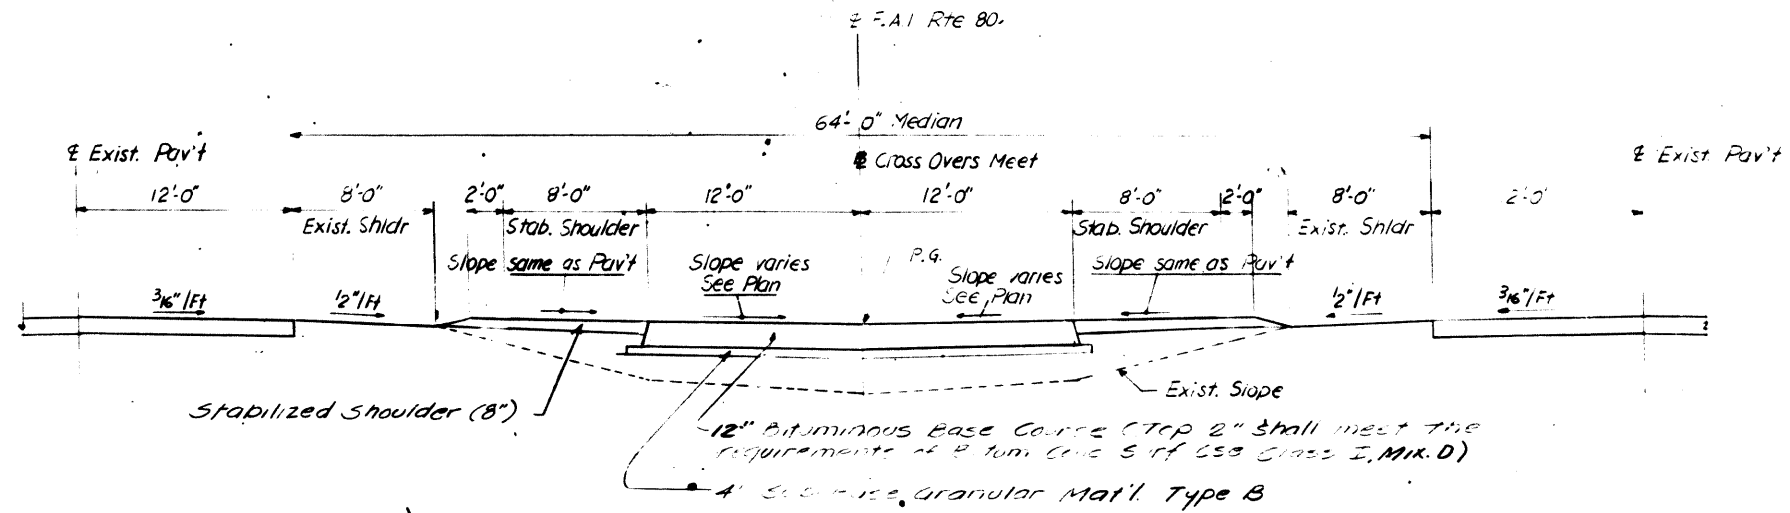 ℄ F.A.I Rte 80.
64'-0" Median
℄ Exist. Pav't
℄ Cross Overs Meet
℄ Exist. Pav't
12'-0" 8'-0" 2'-0" 8'-0" 12'-0" 12'-0" 8'-0" 2'-0" 8'-0" 2'-0'
Exist. Shldr Stab. Shoulder Stab. Shoulder Exist. Shldr
Slope same as Pav't Slope varies P.G. Slope varies Slope same as Pav't
See Plan See Plan
3/16"/Ft 1/2"/Ft 1/2"/Ft 3/16"/Ft
Exist. Slope
Stabilized Shoulder (8")
12" Bituminous Base Course (Top 2" shall meet the
requirements of Class I, Mix. D)
4" Granular Mat'l. Type B